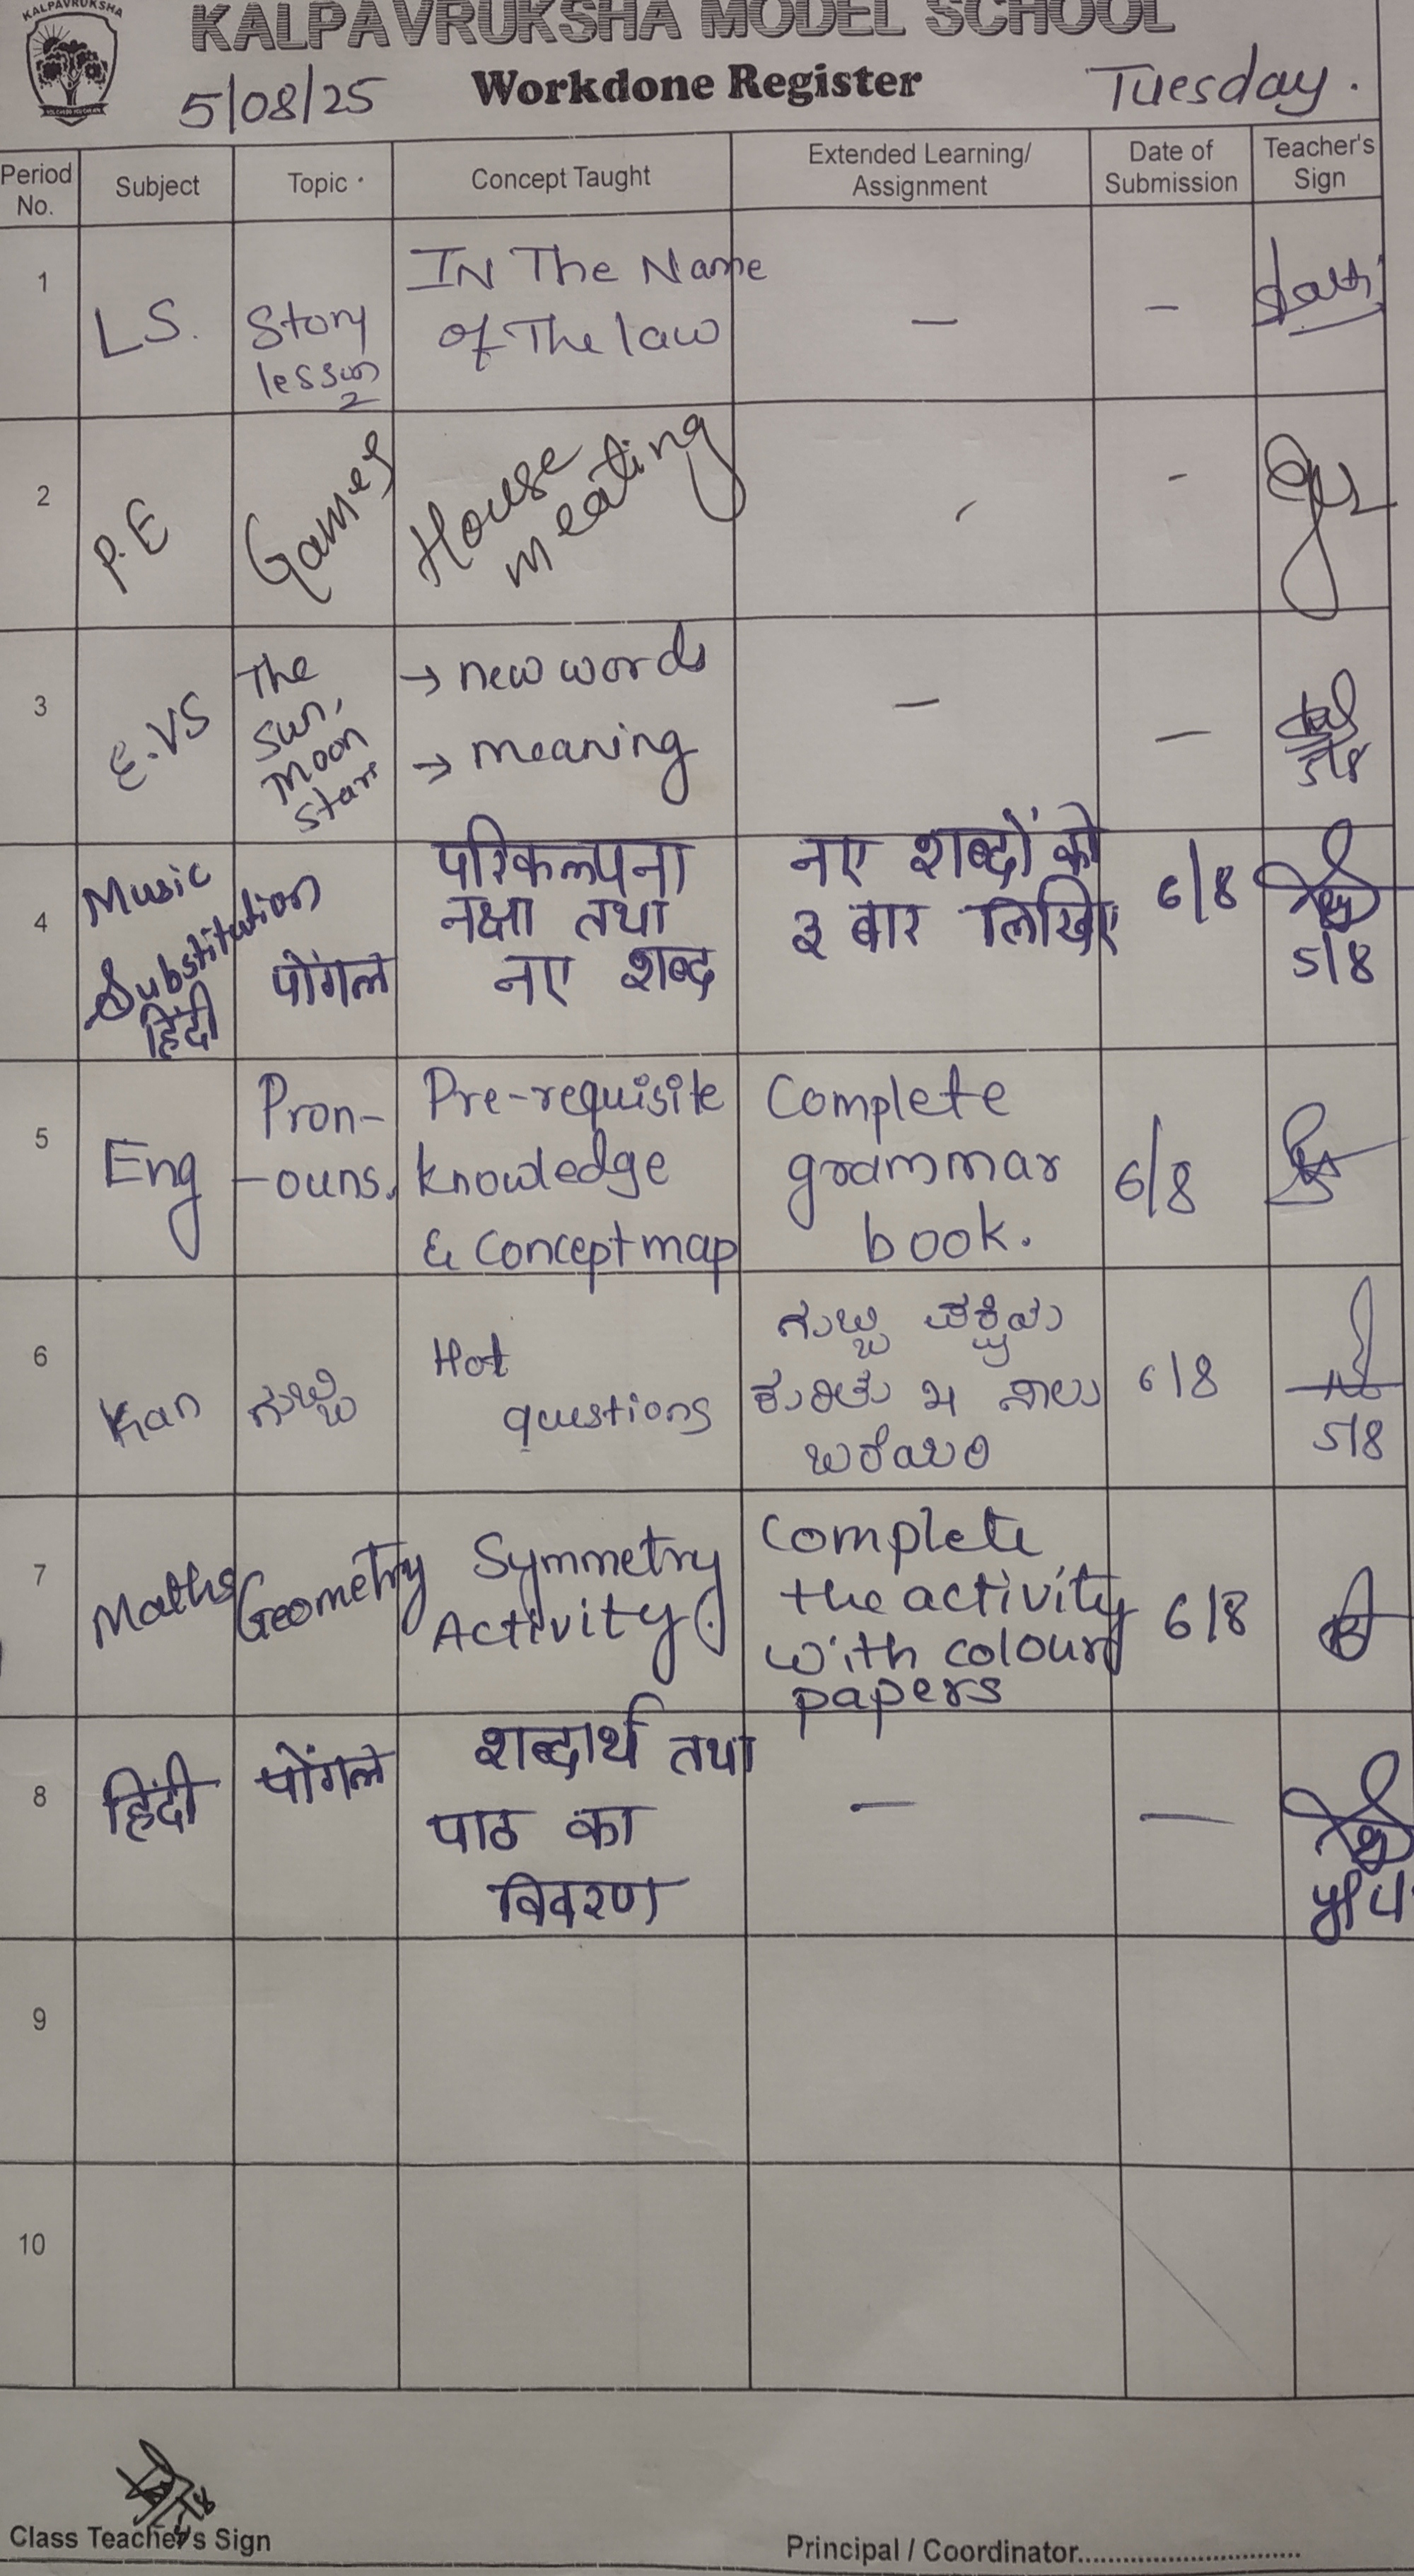 KALPAVRUKSHA
KALPAVRUKSHA MODEL SCHOOL
5/08/25 Workdone Register Tuesday.
Period No. Subject Topic Concept Taught Extended Learning/ Assignment Date of Submission Teacher's Sign
1 LS. Story lesson 2 IN The Name of The law — —
2 P.E Games House meating - -
3 E.VS The Sun, Moon Stars → new words → meaning — — 5/8
4 Music Substitution हिंदी पोंगल परिकल्पना नक्षा तथा नए शब्द नए शब्दों को ३ बार लिखिए 6/8 5/8
5 Eng Pron- -ouns. Pre-requisite knowledge & Concept map Complete grammar book. 6/8
6 Kan ಗುಬ್ಬಿ Hot questions ಗುಬ್ಬಿ ಪಕ್ಷಿಯ ಕುರಿತು ೫ ಸಾಲು ಬರೆಯಿರಿ 6/8 5/8
7 Maths Geometry Symmetry Activity. Complete the activity with colour papers 6/8
8 हिंदी पोंगल शब्दार्थ तथा पाठ का विवरण — —
9
10
Class Teacher's Sign Principal / Coordinator..............................